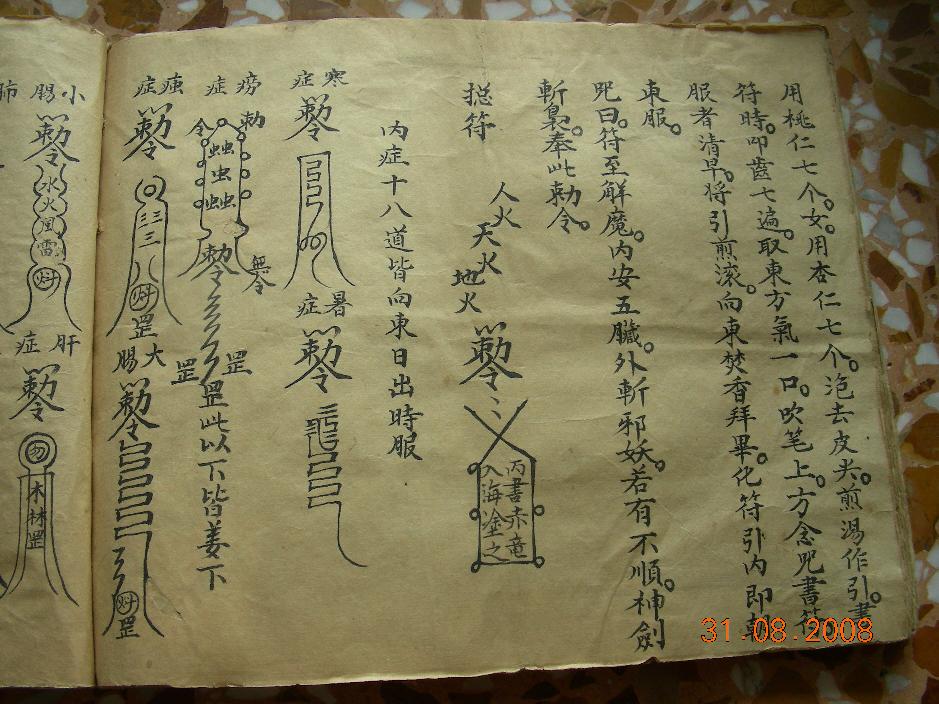 用桃仁七个。女。用杏仁七个。泡去皮尖煎湯作引。書
符時。叩齒七遍。取東方氣一口。吹笔上。方念咒書符。
服者清早。將引煎滚。向東焚香拜畢。化符引内即朝
東服。
咒曰。符至解魔。内安五臟。外斬邪妖。若有不順。神劍
斬裊。奉此勅令。
捴符
人火
天火
地火
勅令
丙書赤竜
入海淦之
内症十八道皆向東日出時服
寒症
勅令
弓弓
暑症
勅令
癆症
勅令
䖝虫䖝
勅令
罡
罡
罡此以下皆姜下
症
勅令
三
罡
大腸
勅令
弓弓弓弓
罡
小腸
勅令
水火風雷
肝症
勅令
勿
木林罡
肺
31.08.2008